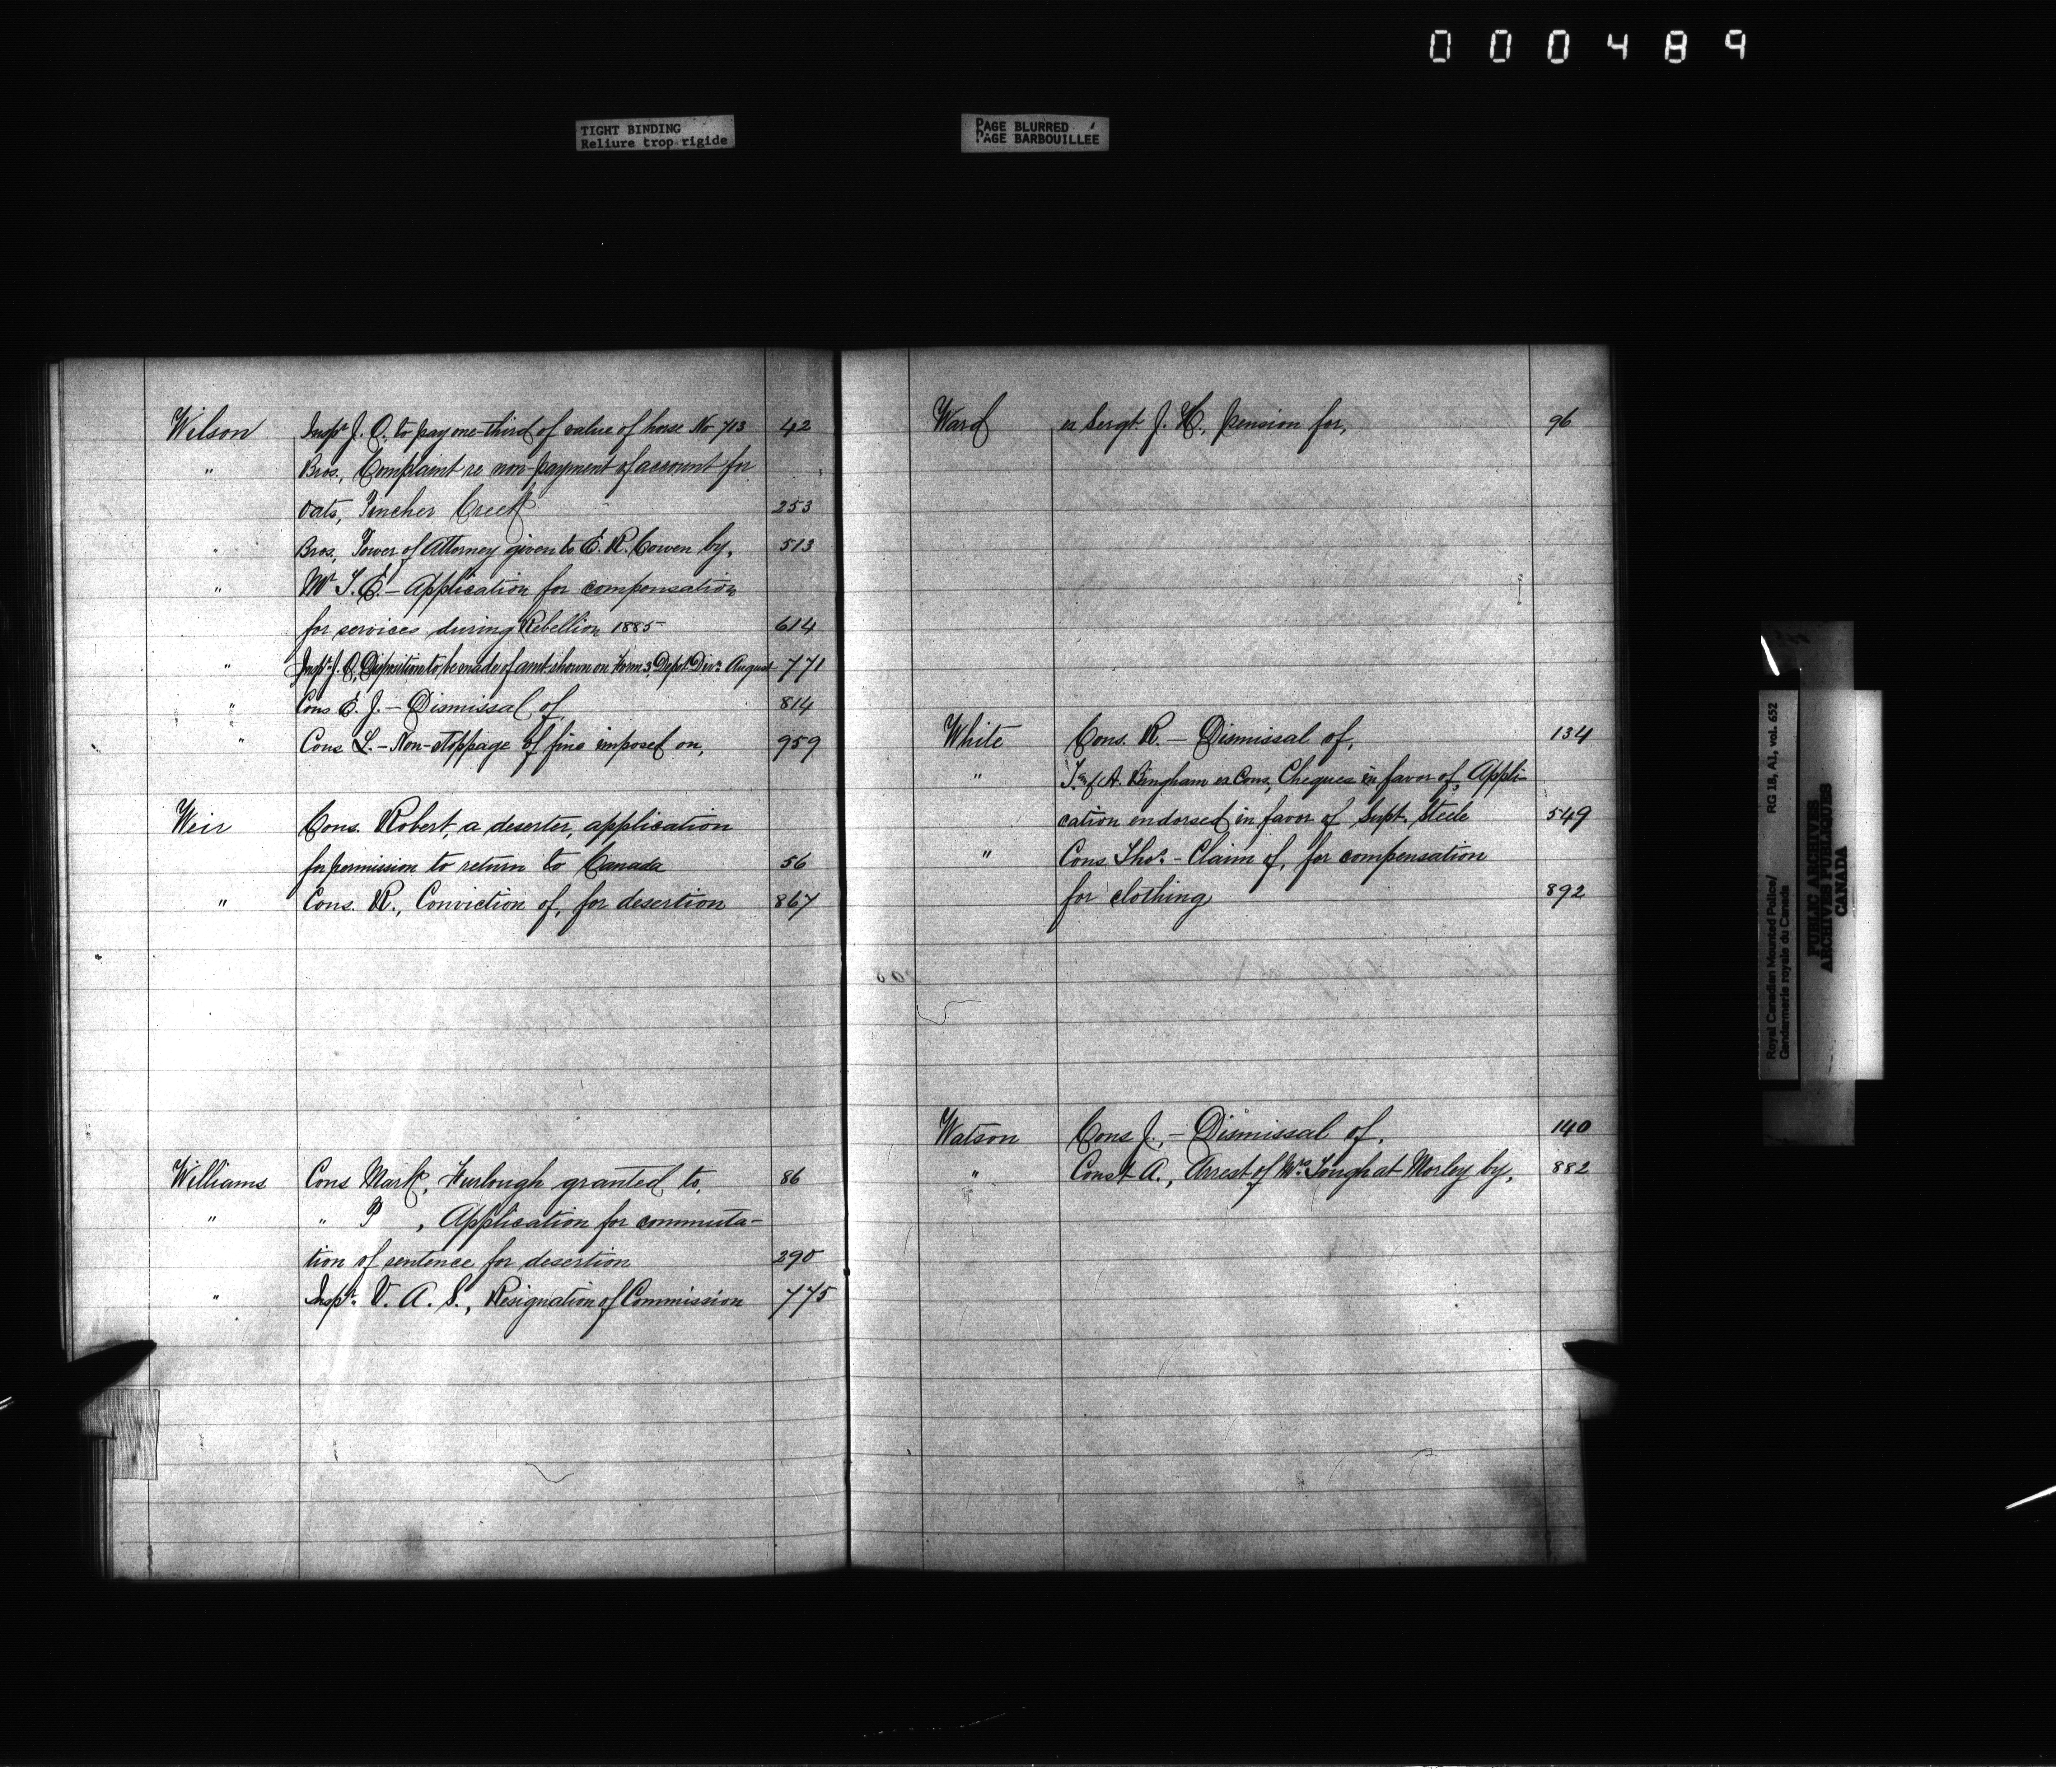 000489
TIGHT BINDING
Reliure trop rigide
PAGE BLURRED
PAGE BARBOUILLEE
Wilson Inspr. J. O. to pay one-third of value of horse No 713 42
" Bros., Complaint re non-payment of account for
oats, Pincher Creek 253
" Bros. Power of Attorney given to E. R. Cowen by, 513
" Mr T. E. - Application for compensation
for services during Rebellion 1885 614
" Inspr. J. O. Disposition to be made of amt shown on Form 3, Depot Divn August 771
" Cons E. J. - Dismissal of 814
" Cons L. - Non-stoppage of fine imposed on, 959
Weir Cons. Robert, a deserter, application
for permission to return to Canada 56
" Cons. R., Conviction of, for desertion 867
Williams Cons Mark, Furlough granted to, 86
" " P , Application for commuta-
tion of sentence for desertion 290
" Inspr. V. A. S., Resignation of Commission 775
Ward ex Sergt. J. H., pension for, 96
White Cons. R. - Dismissal of, 134
" & A. Bingham ex Cons, Cheques in favor of, Appli-
cation endorsed in favor of Supt. Steele 549
" Cons Thos. - Claim of, for compensation
for clothing 892
Watson Cons J., - Dismissal of. 140
" Const A., Arrest of Mrs. Tough at Morley by, 882
Royal Canadian Mounted Police/
Gendarmerie royale du Canada
RG 18, A1, vol. 652
PUBLIC ARCHIVES
ARCHIVES PUBLIQUES
CANADA